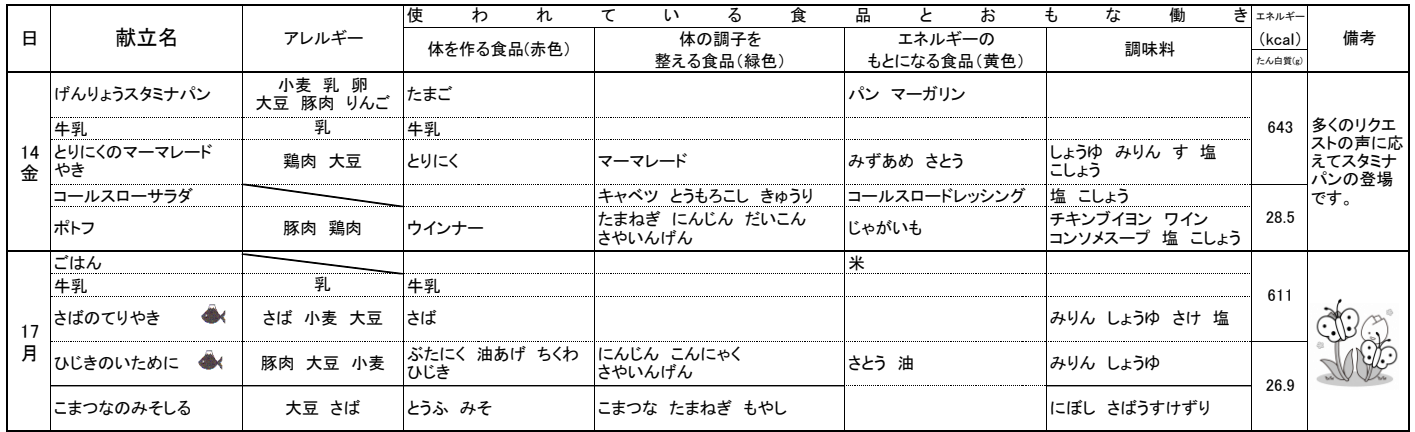 使われている食品とおもな働き
日 献立名 アレルギー 体を作る食品(赤色) 体の調子を整える食品(緑色) エネルギーのもとになる食品(黄色) 調味料 エネルギー(kcal) たん白質(g) 備考
14金
げんりょうスタミナパン 小麦 乳 卵 大豆 豚肉 りんご たまご パン マーガリン
牛乳 乳 牛乳
643
とりにくのマーマレードやき 鶏肉 大豆 とりにく マーマレード みずあめ さとう しょうゆ みりん す 塩 こしょう
コールスローサラダ キャベツ とうもろこし きゅうり コールスロードレッシング 塩 こしょう
28.5
ポトフ 豚肉 鶏肉 ウインナー たまねぎ にんじん だいこん さやいんげん じゃがいも チキンブイヨン ワイン コンソメスープ 塩 こしょう
多くのリクエ
ストの声に応
えてスタミナ
パンの登場
です。
17月
ごはん 米
牛乳 乳 牛乳
611
さばのてりやき さば 小麦 大豆 さば みりん しょうゆ さけ 塩
ひじきのいために 豚肉 大豆 小麦 ぶたにく 油あげ ちくわ ひじき にんじん こんにゃく さやいんげん さとう 油 みりん しょうゆ
26.9
こまつなのみそしる 大豆 さば とうふ みそ こまつな たまねぎ もやし にぼし さばうすけずり